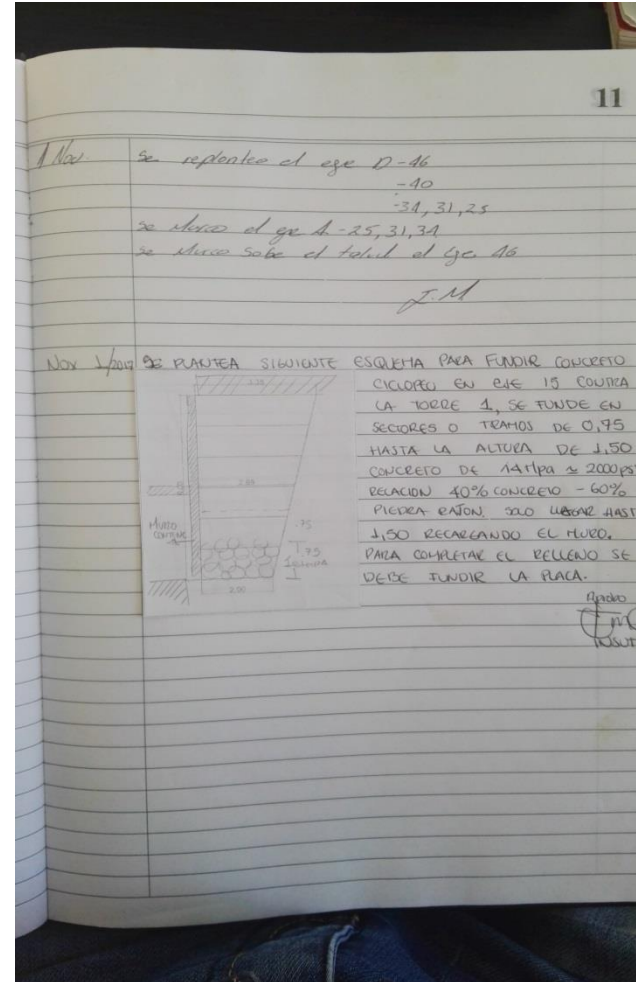 11
1 Nov. se replanteo el eje D-46
-40
-34, 31, 25
se Marco el eje A-25, 31, 34
se Marco sobe el talud el eje 46
J.M
Nov 1/2017 SE PLANTEA SIGUIENTE ESQUEMA PARA FUNDIR CONCRETO
CICLOPEO EN EJE 15 CONTRA
LA TORRE 1, SE FUNDE EN
SECTORES O TRAMOS DE 0,75
HASTA LA ALTURA DE 1.50
CONCRETO DE 14 Mpa ≃ 2000 PSI
RELACION 40% CONCRETO - 60%
PIEDRA RATON. SOLO LLEGAR HAST
1,50 RECARGANDO EL MURO.
PARA COMPLETAR EL RELLENO SE
DEBE FUNDIR LA PLACA.
MURO
.75
.75
2.00